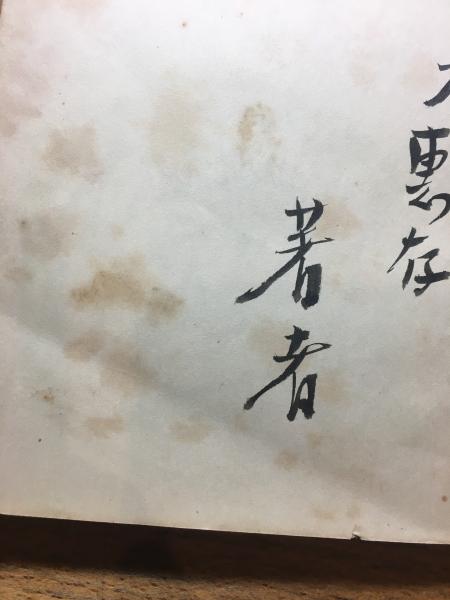 惠存
著者